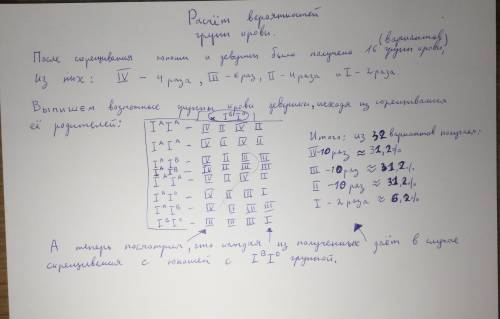 Расчёт вероятностей
групп крови.
(вариантов)
После скрещивания юноши и девушки было получено 16 групп крови,
из них: IV - 4 раза, III - 6 раз, II - 4 раза и I - 2 раза
Выпишем возможные группы крови девушки, исходя из скрещивания
её родителей:
(× IᴮIᴼ)
IᴬIᴬ - IV II IV II
IᴬIᴬ - IV II IV II
IᴬIᴮ - IV II III III
IᴬIᴮ - IV II III III
- IV II IV II
IᴬIᴼ - IV II III I
- IV II III III
IᴮIᴼ - III III III I
Итого: из 32 вариантов получаем:
IV - 10 раз ≈ 31,2%
III - 10 раз ≈ 31,2%
II - 10 раз ≈ 31,2%
I - 2 раза ≈ 6,2%
А теперь посмотрим, что каждая из полученных даёт в случае
скрещивания с юношей с IᴮIᴼ группой.